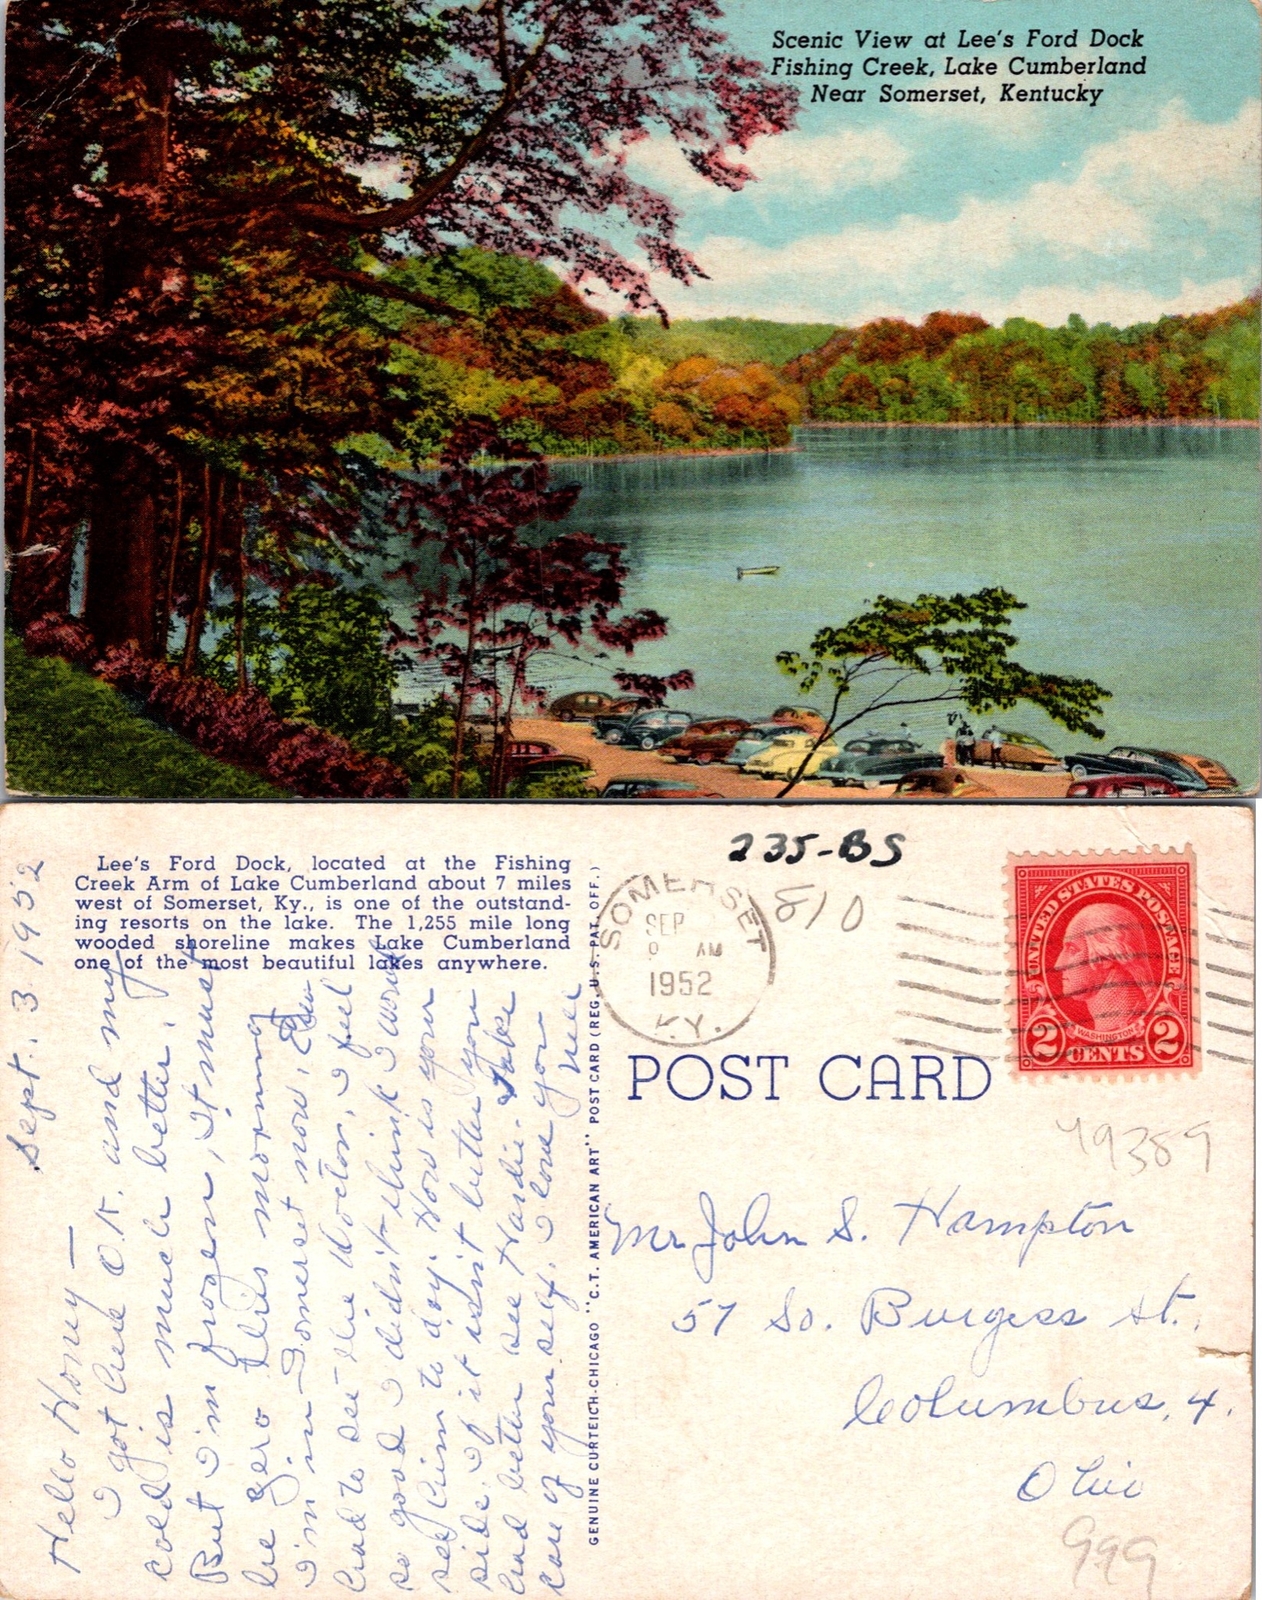 Scenic View at Lee's Ford Dock
Fishing Creek, Lake Cumberland
Near Somerset, Kentucky
Lee's Ford Dock, located at the Fishing
Creek Arm of Lake Cumberland about 7 miles
west of Somerset, Ky., is one of the outstand-
ing resorts on the lake. The 1,255 mile long
wooded shoreline makes Lake Cumberland
one of the most beautiful lakes anywhere.
Sept. 3 1952
Hello Honey —
I got here O.K. and my
cold is much better.
But I'm frozen, it must
be zero this morning
I'm in Somerset now,
had to see the Doctor, I feel
so good I didn't think I would
see him to day. How is your
side, if it isn't better you
had better see Hardie. Take
care of your self. I love you
GENUINE CURTEICH-CHICAGO "C.T. AMERICAN ART" POST CARD (REG. U.S. PAT. OFF.)
235-BS
810
SOMERSET
SEP
9 AM
1952
KY.
UNITED STATES POSTAGE
WASHINGTON
2 CENTS 2
POST CARD
49389
Mr John S. Hampton
57 So. Burgess St.,
Columbus, 4.
Ohio
999